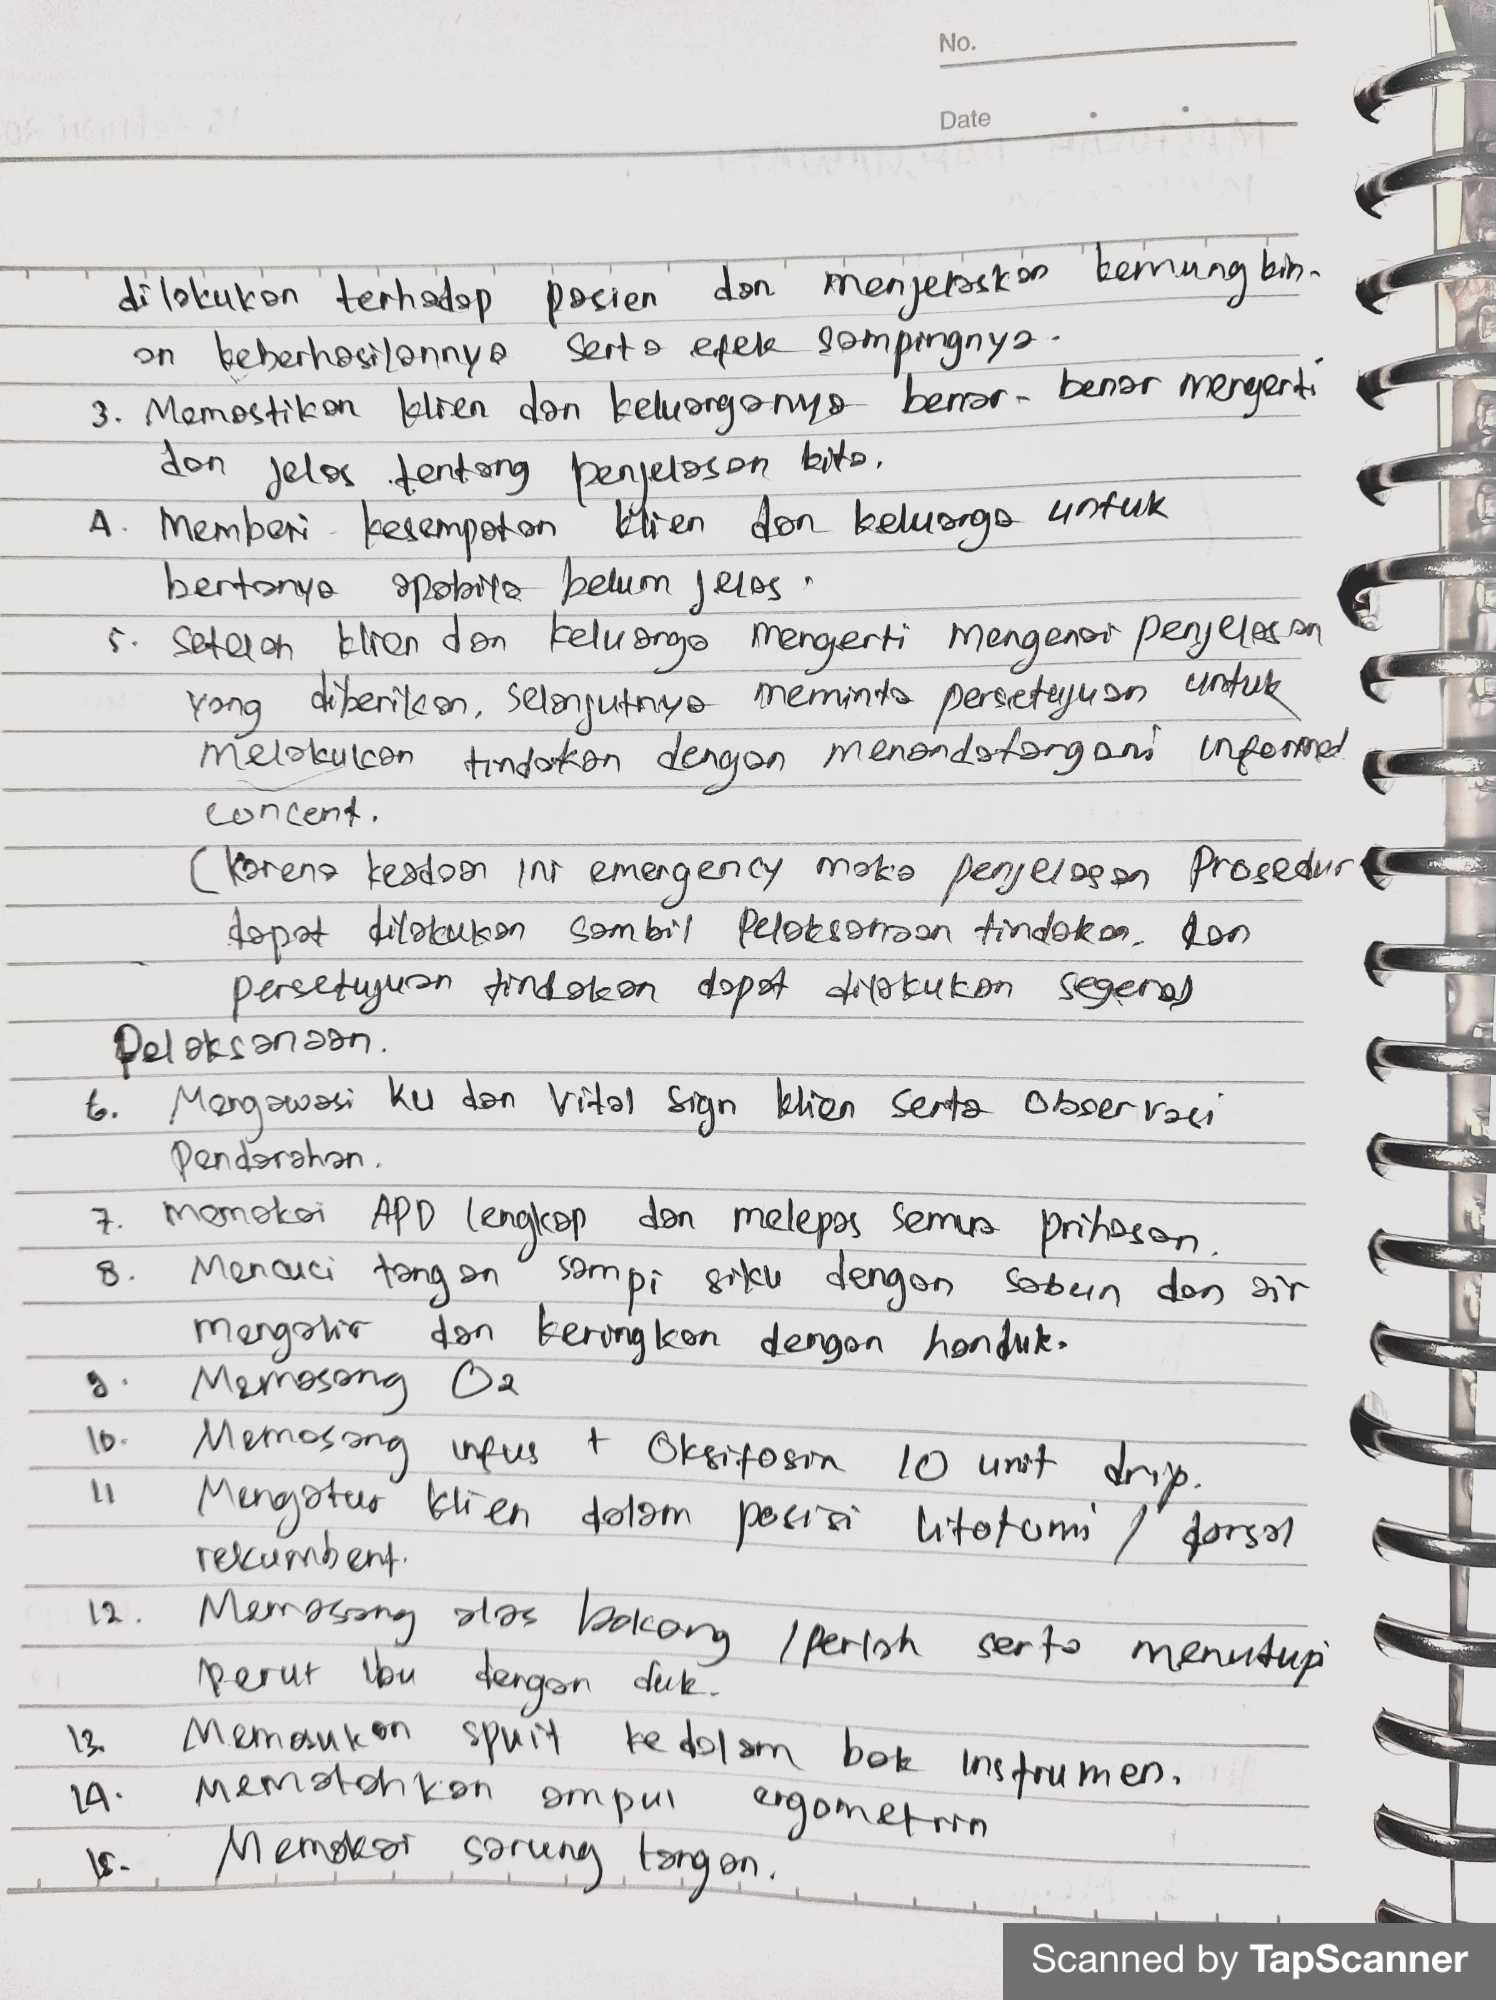 No.
Date
dilakukan terhadap pasien dan menjelaskan kemungkin-
an keberhasilannya serta efek sampingnya.
3. Memastikan klien dan keluarganya benar-benar mengerti
dan jelas tentang penjelasan kita.
4. Memberi kesempatan klien dan keluarga untuk
bertanya apabila belum jelas.
5. Setelah klien dan keluarga mengerti mengenai penjelasan
yang diberikan, selanjutnya meminta persetujuan untuk
melakukan tindakan dengan menandatangani informed
concent.
(Karena keadaan ini emergency maka penjelasan prosedur
dapat dilakukan sambil pelaksanaan tindakan. dan
persetujuan tindakan dapat dilakukan segera)
Pelaksanaan.
6. Mengawasi KU dan Vital sign klien serta observasi
Pendarahan.
7. memakai APD lengkap dan melepas semua prihasan.
8. Mencuci tangan sampi siku dengan sabun dan air
mengalir dan keringkan dengan handuk.
9. Memasang O2
10. Memasang infus + Oksitosin 10 unit drip.
11 Mengatur klien dalam posisi litotomi / dorsal
rekumbent.
12. Memasang alas bokong /perlak serta menutupi
perut ibu dengan duk.
13. Memasukan spuit kedalam bak instrumen.
14. Mematahkan ampul ergometrin
15. Memakai sarung tangan.
Scanned by TapScanner